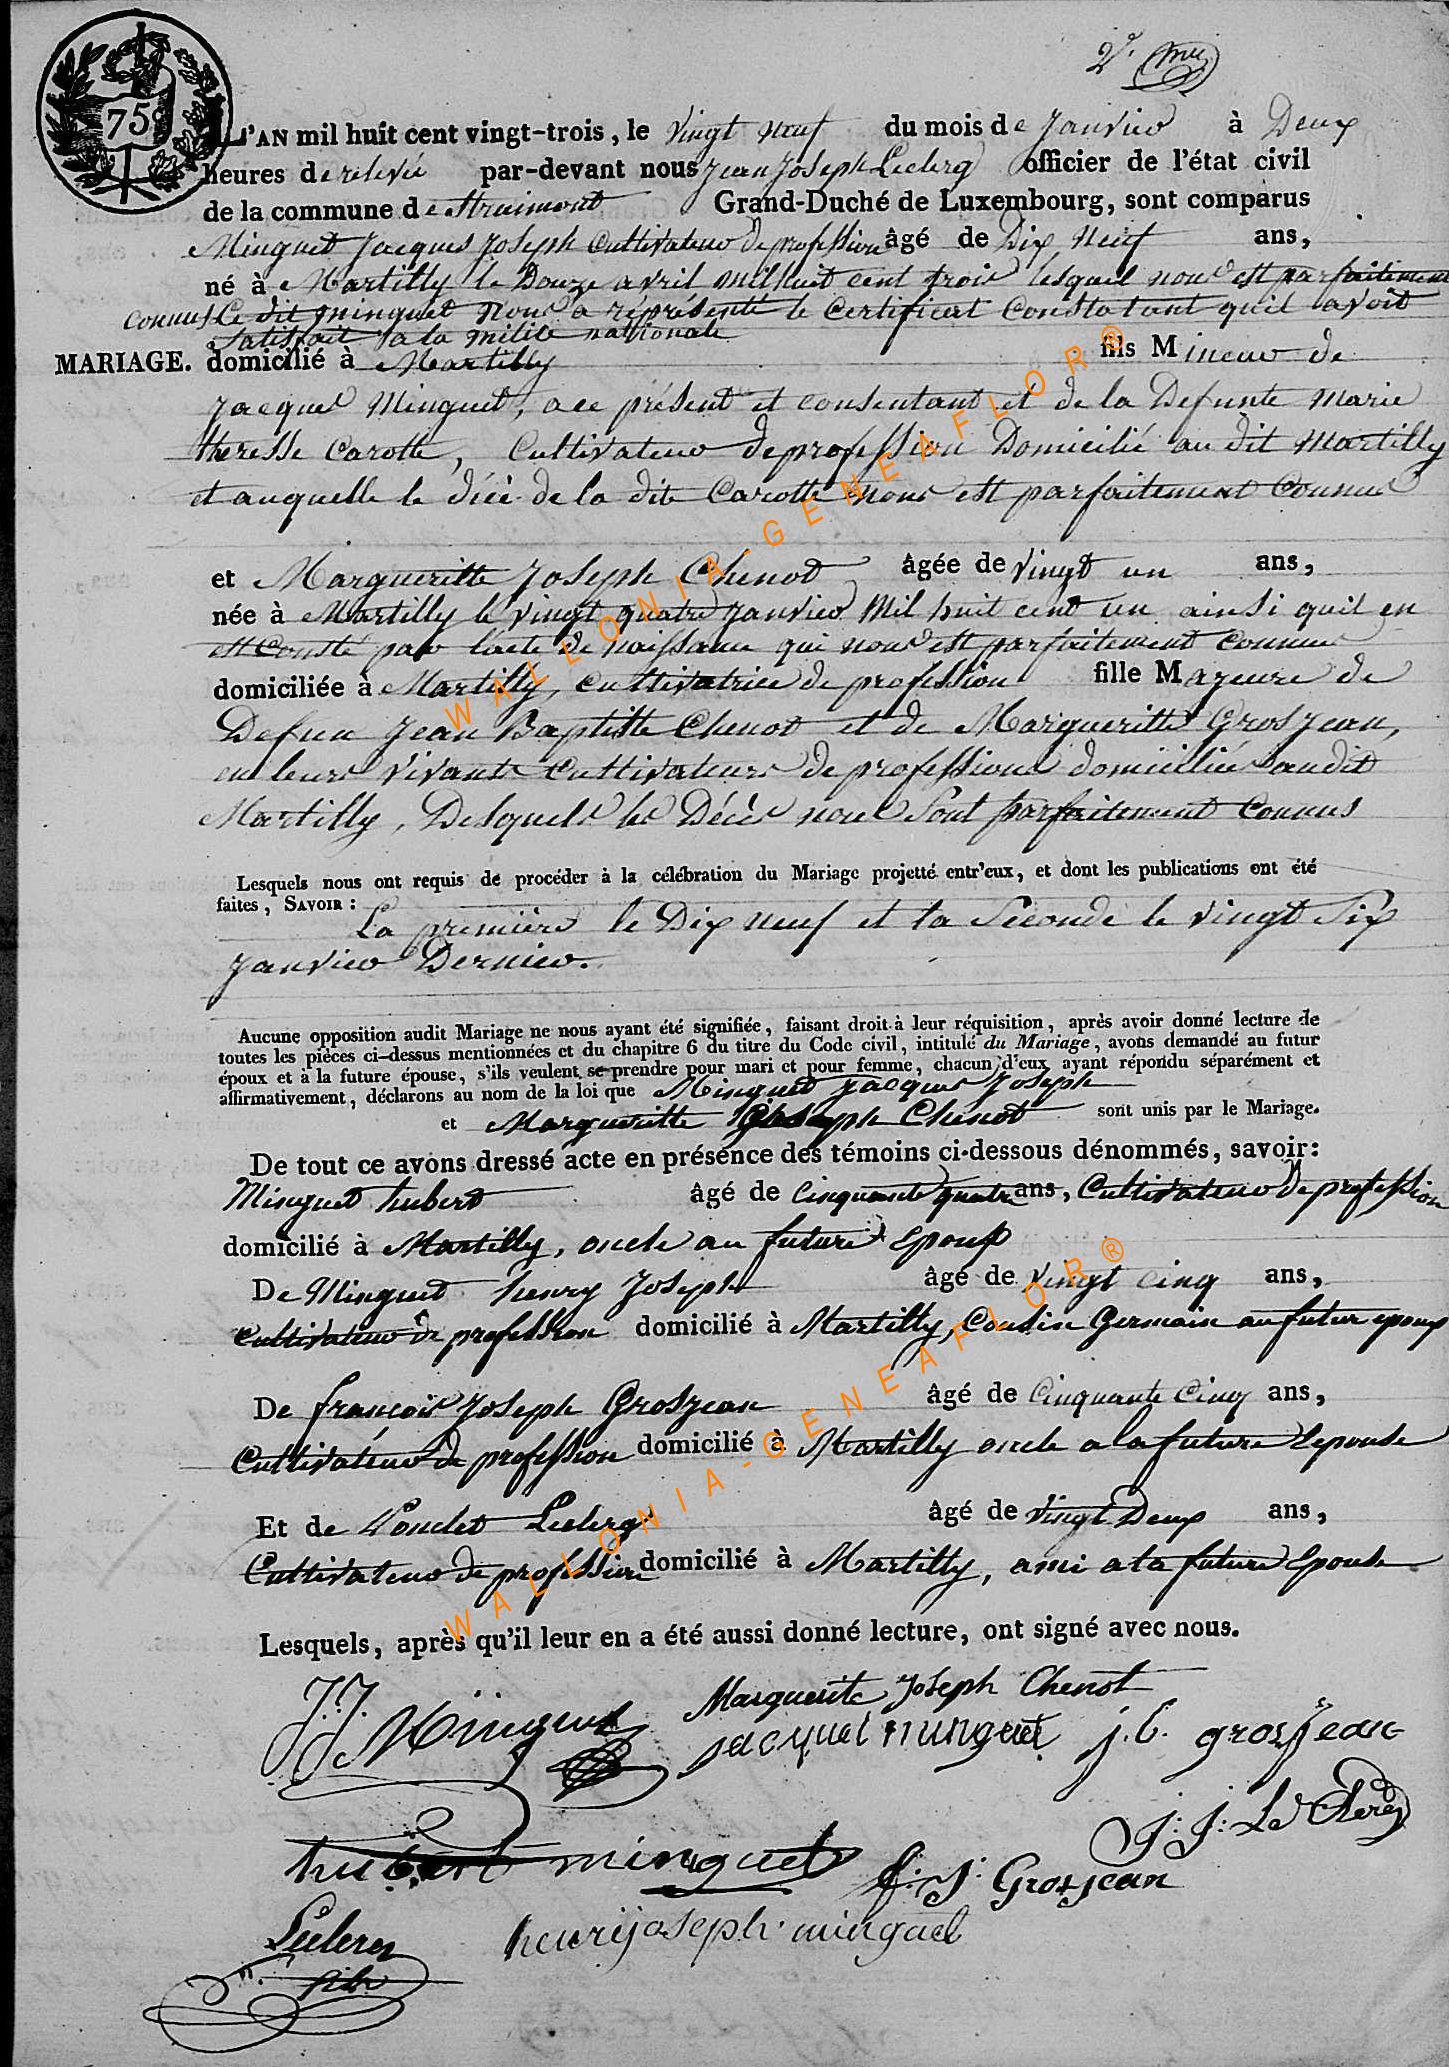 2e.
75
L'AN mil huit cent vingt-trois, le vingt neuf du mois de Janvier à Deux
heures de relevée par-devant nous Jean Joseph Leclerq officier de l'état civil
de la commune de Straimont Grand-Duché de Luxembourg, sont comparus
Minguet Jacques Joseph Cultivateur de profession âgé de Dix Neuf ans,
né à Martilly le Douze avril mil huit cent trois lesquel nous est parfaitement
connus Le dit minguet nous a réprésenté le Certificat Constatant qu'il avoit
satisfait a la milice nationale
MARIAGE. domicilié à Martilly fils Mineur de
Jacques Minguet, a ce présent et consentant et de la Defunte Marie
theresse Carotte, Cultivateur de profession Domicilié au dit Martilly
et auquelle le décè de la dite Carotte nous est parfaitement Connus
et Margueritte Joseph Chenot âgée de vingt un ans,
née à Martilly le vingt quatre Janvier Mil huit cent un ainsi quil en
est Consté par l'acte de naissance qui nous est parfaitement connue
domiciliée à Martilly, cultivatrice de profession fille Majeure de
Defun Jean Baptiste Chenot et de Margueritte Grosjean,
en leurs vivants cultivateurs de profession domiciliés audit
Martilly, Desquels les Décès nous sont parfaitement Connus
Lesquels nous ont requis de procéder à la célébration du Mariage projetté entr'eux, et dont les publications ont été
faites, SAVOIR :
La première le Dix neuf et la Seconde le vingt Six
Janvier Dernier.
Aucune opposition audit Mariage ne nous ayant été signifiée, faisant droit à leur réquisition, après avoir donné lecture de
toutes les pièces ci-dessus mentionnées et du chapitre 6 du titre du Code civil, intitulé du Mariage, avons demandé au futur
époux et à la future épouse, s'ils veulent se prendre pour mari et pour femme, chacun d'eux ayant répondu séparément et
affirmativement, déclarons au nom de la loi que Minguet Jacques Joseph
et Margueritte Joseph Chenot sont unis par le Mariage.
De tout ce avons dressé acte en présence des témoins ci-dessous dénommés, savoir:
Minguet hubert âgé de Cinquante quatre ans, Cultivateur de profession
domicilié à Martilly, oncle au future Epoux
De Minguet henry Joseph âgé de vingt cinq ans,
Cultivateur de profession domicilié à Martilly, Cousin Germain au futur epoux
De françois Joseph Grosjean âgé de Cinquante Cinq ans,
Cultivateur de profession domicilié à Martilly oncle a la future Epouse
Et de Poncelet Leclerq âgé de vingt Deux ans,
Cultivateur de profession domicilié à Martilly, ami a la future Epouse
Lesquels, après qu'il leur en a été aussi donné lecture, ont signé avec nous.
J.J. Minguet Marguerite Joseph Chenot
jacques minguet j. b. grosjean
J: J: Le Clerq
hubert minguet f: J: Grosjean
Leclerq henrijoseph minguet
fils
WALLONIA-GENEAFLOR®
WALLONIA-GENEAFLOR®